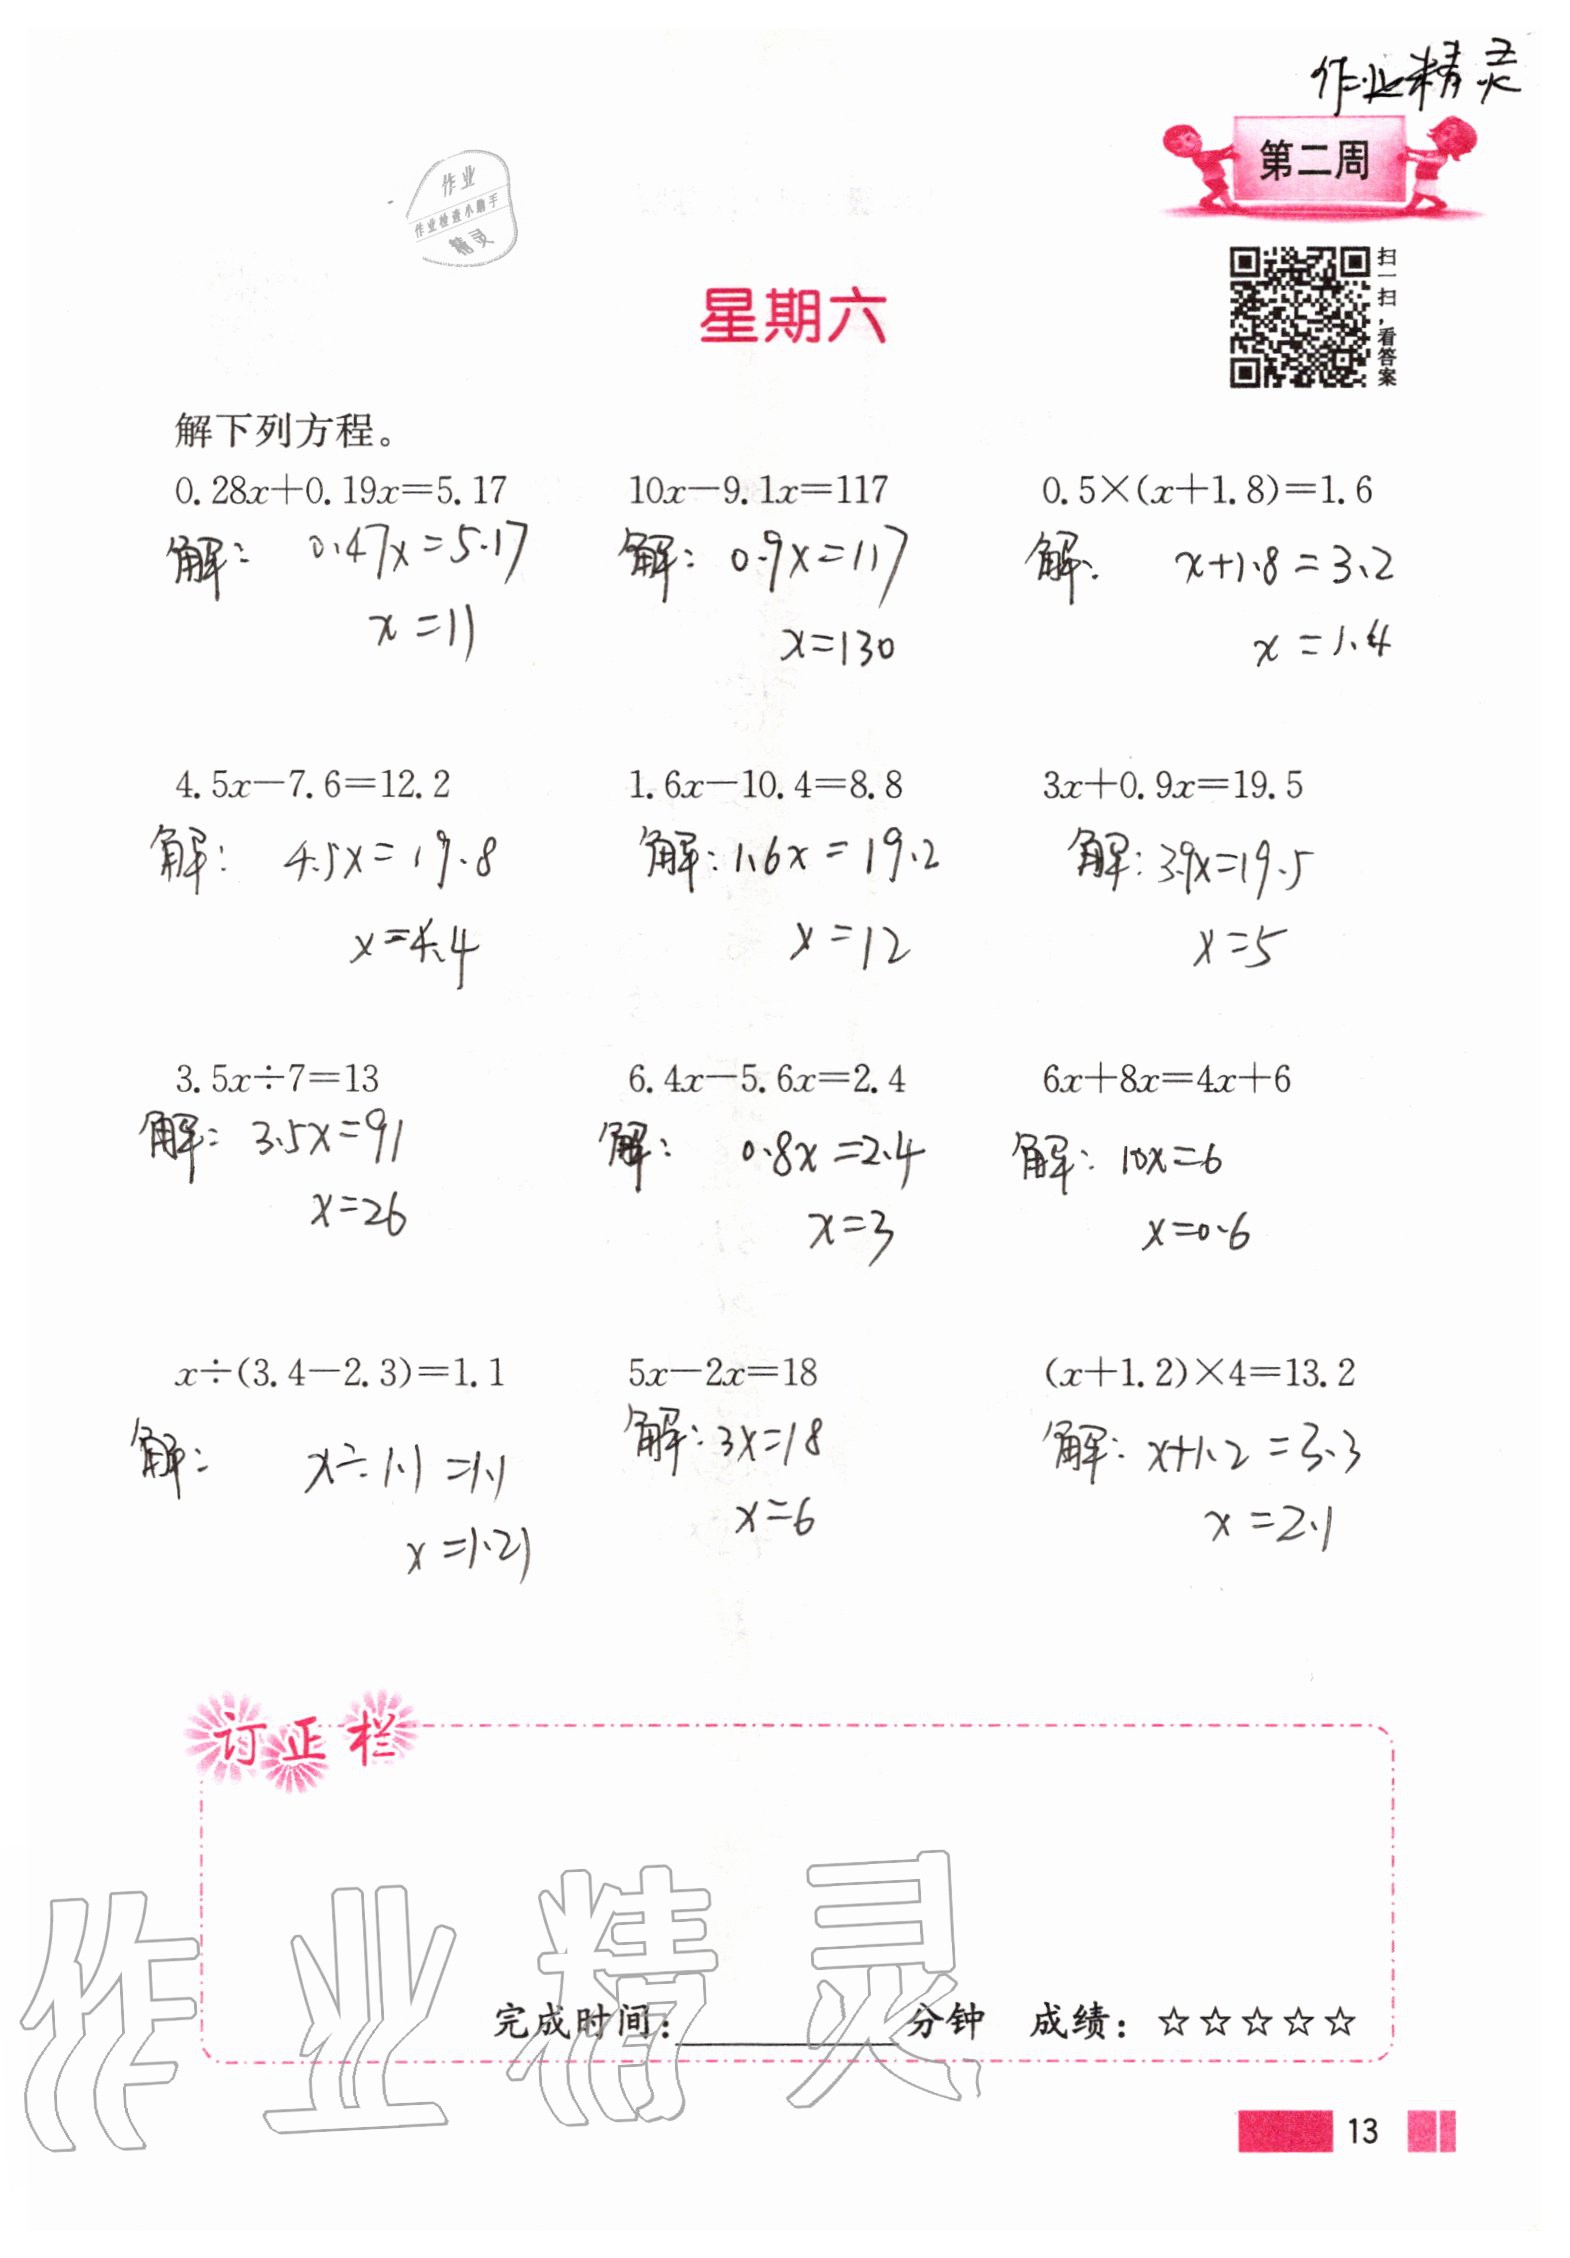 作业精灵
第二周
作业
作业检查小助手
精灵
扫一扫，看答案
星期六
解下列方程。
0.28x+0.19x=5.17 10x-9.1x=117 0.5×(x+1.8)=1.6
解: 0.47x=5.17 解: 0.9x=117 解: x+1.8=3.2
x=11 x=130 x=1.4
4.5x-7.6=12.2 1.6x-10.4=8.8 3x+0.9x=19.5
解: 4.5x=19.8 解: 1.6x=19.2 解: 3.9x=19.5
x=4.4 x=12 x=5
3.5x÷7=13 6.4x-5.6x=2.4 6x+8x=4x+6
解: 3.5x=91 解: 0.8x=2.4 解: 10x=6
x=26 x=3 x=0.6
x÷(3.4-2.3)=1.1 5x-2x=18 (x+1.2)×4=13.2
解: x÷1.1=1.1 解: 3x=18 解: x+1.2=3.3
x=1.21 x=6 x=2.1
订正栏
作业精灵
完成时间:________分钟 成绩: ☆☆☆☆☆
13